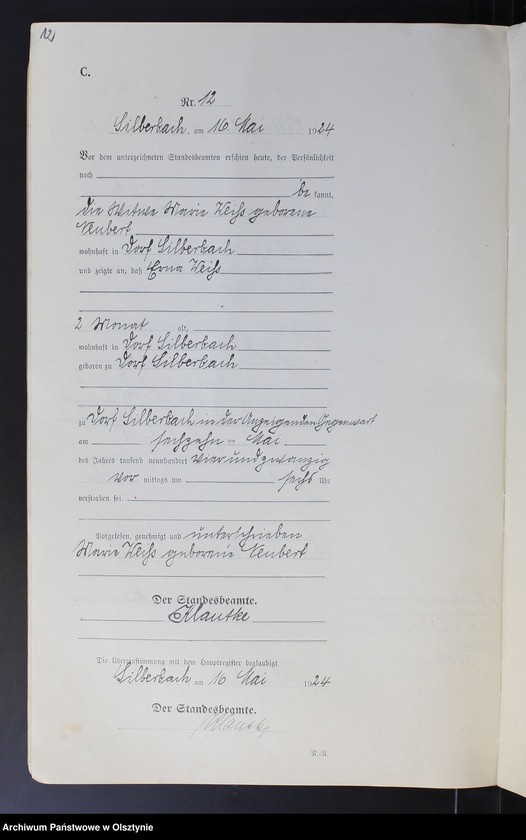 12
C.
Nr. 12
Silberbach, am 16. Mai 1924
Vor dem unterzeichneten Standesbeamten erschien heute, der Persönlichkeit
nach
be kannt,
die Witwe Marie Weiß geborene
Neubert
wohnhaft in Dorf Silberbach
und zeigte an, daß Erna Weiß
2 Monat alt,
wohnhaft in Dorf Silberbach
geboren zu Dorf Silberbach
zu Dorf Silberbach in der Anzeigenden Gegenwart
am sechzehn ten Mai
des Jahres tausend neunhundert vierundzwanzig
vor mittags um sechs Uhr
verstorben sei.
Vorgelesen, genehmigt und unterschrieben
Marie Weiß geborene Neubert
Der Standesbeamte.
Klautke
Die Übereinstimmung mit dem Hauptregister beglaubigt
Silberbach am 16 Mai 1924
Der Standesbeamte.
Klautke
Archiwum Państwowe w Olsztynie